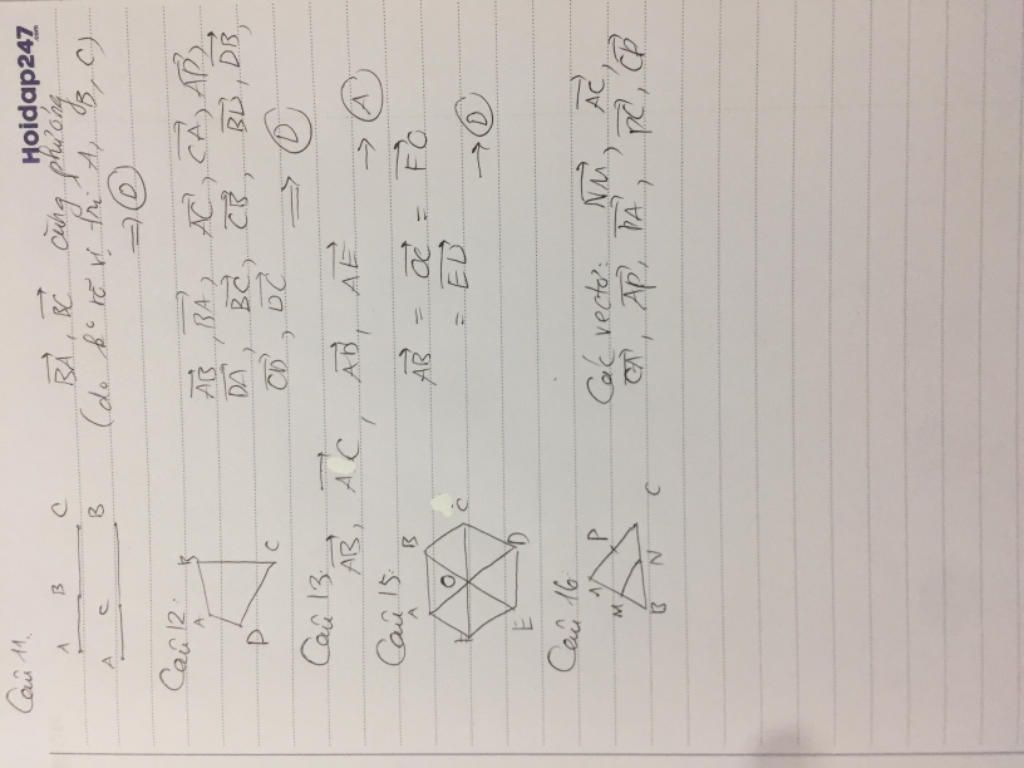 Hoidap247.com
Câu 11.
A B C
A C B
BA, BC cùng phương
(do k° rõ vị trí A, B, C)
⇒ D
Câu 12.
A B C D
AB, BA, AC, CA, AD,
DA, BC, CB, BD, DB,
CD, DC
⇒ D
Câu 13.
AB, AC, AD, AE → A
Câu 15.
A B O C D E
AB = OC = FO
= ED → D
Câu 16.
A M P B N C
Các vectơ: NM, AC,
CA, AP, PA, PC, CP